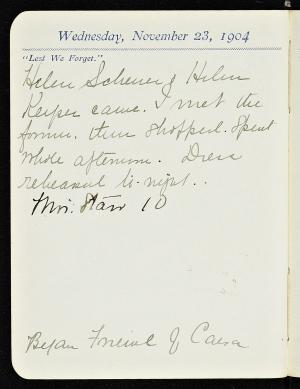 Wednesday, November 23, 1904
"Lest We Forget."
Helen Scheuer & Helen
Keiper came. I met the
former. then shopped. Spent
whole afternoon. Dress
rehearsal to-night..
Mrs. Starr 10
Began Funeral of Caesar